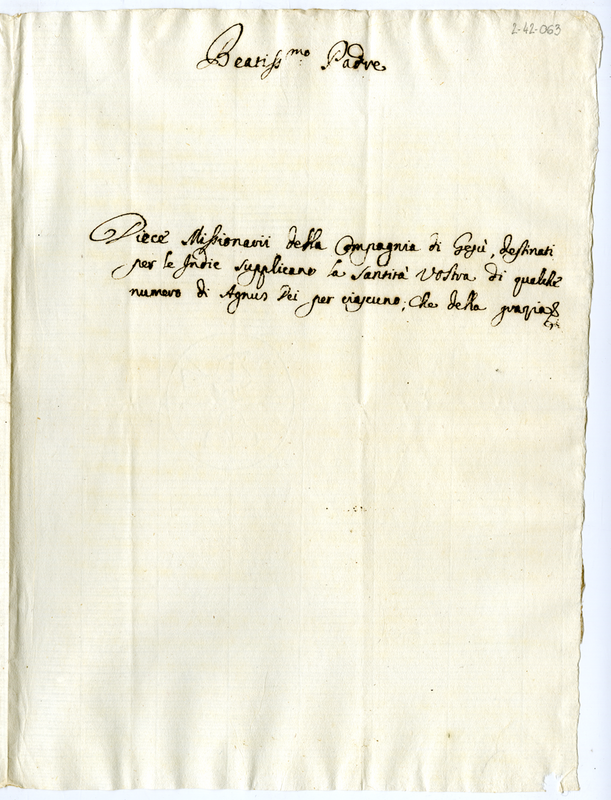 2-42-063
Beatiss.mo Padre
Diece Missionarii della Compagnia di Gesù, destinati
per le Indie supplicano la Santità Vostra di qualche
numero di Agnus Dei per ciascuno; che della grazia &